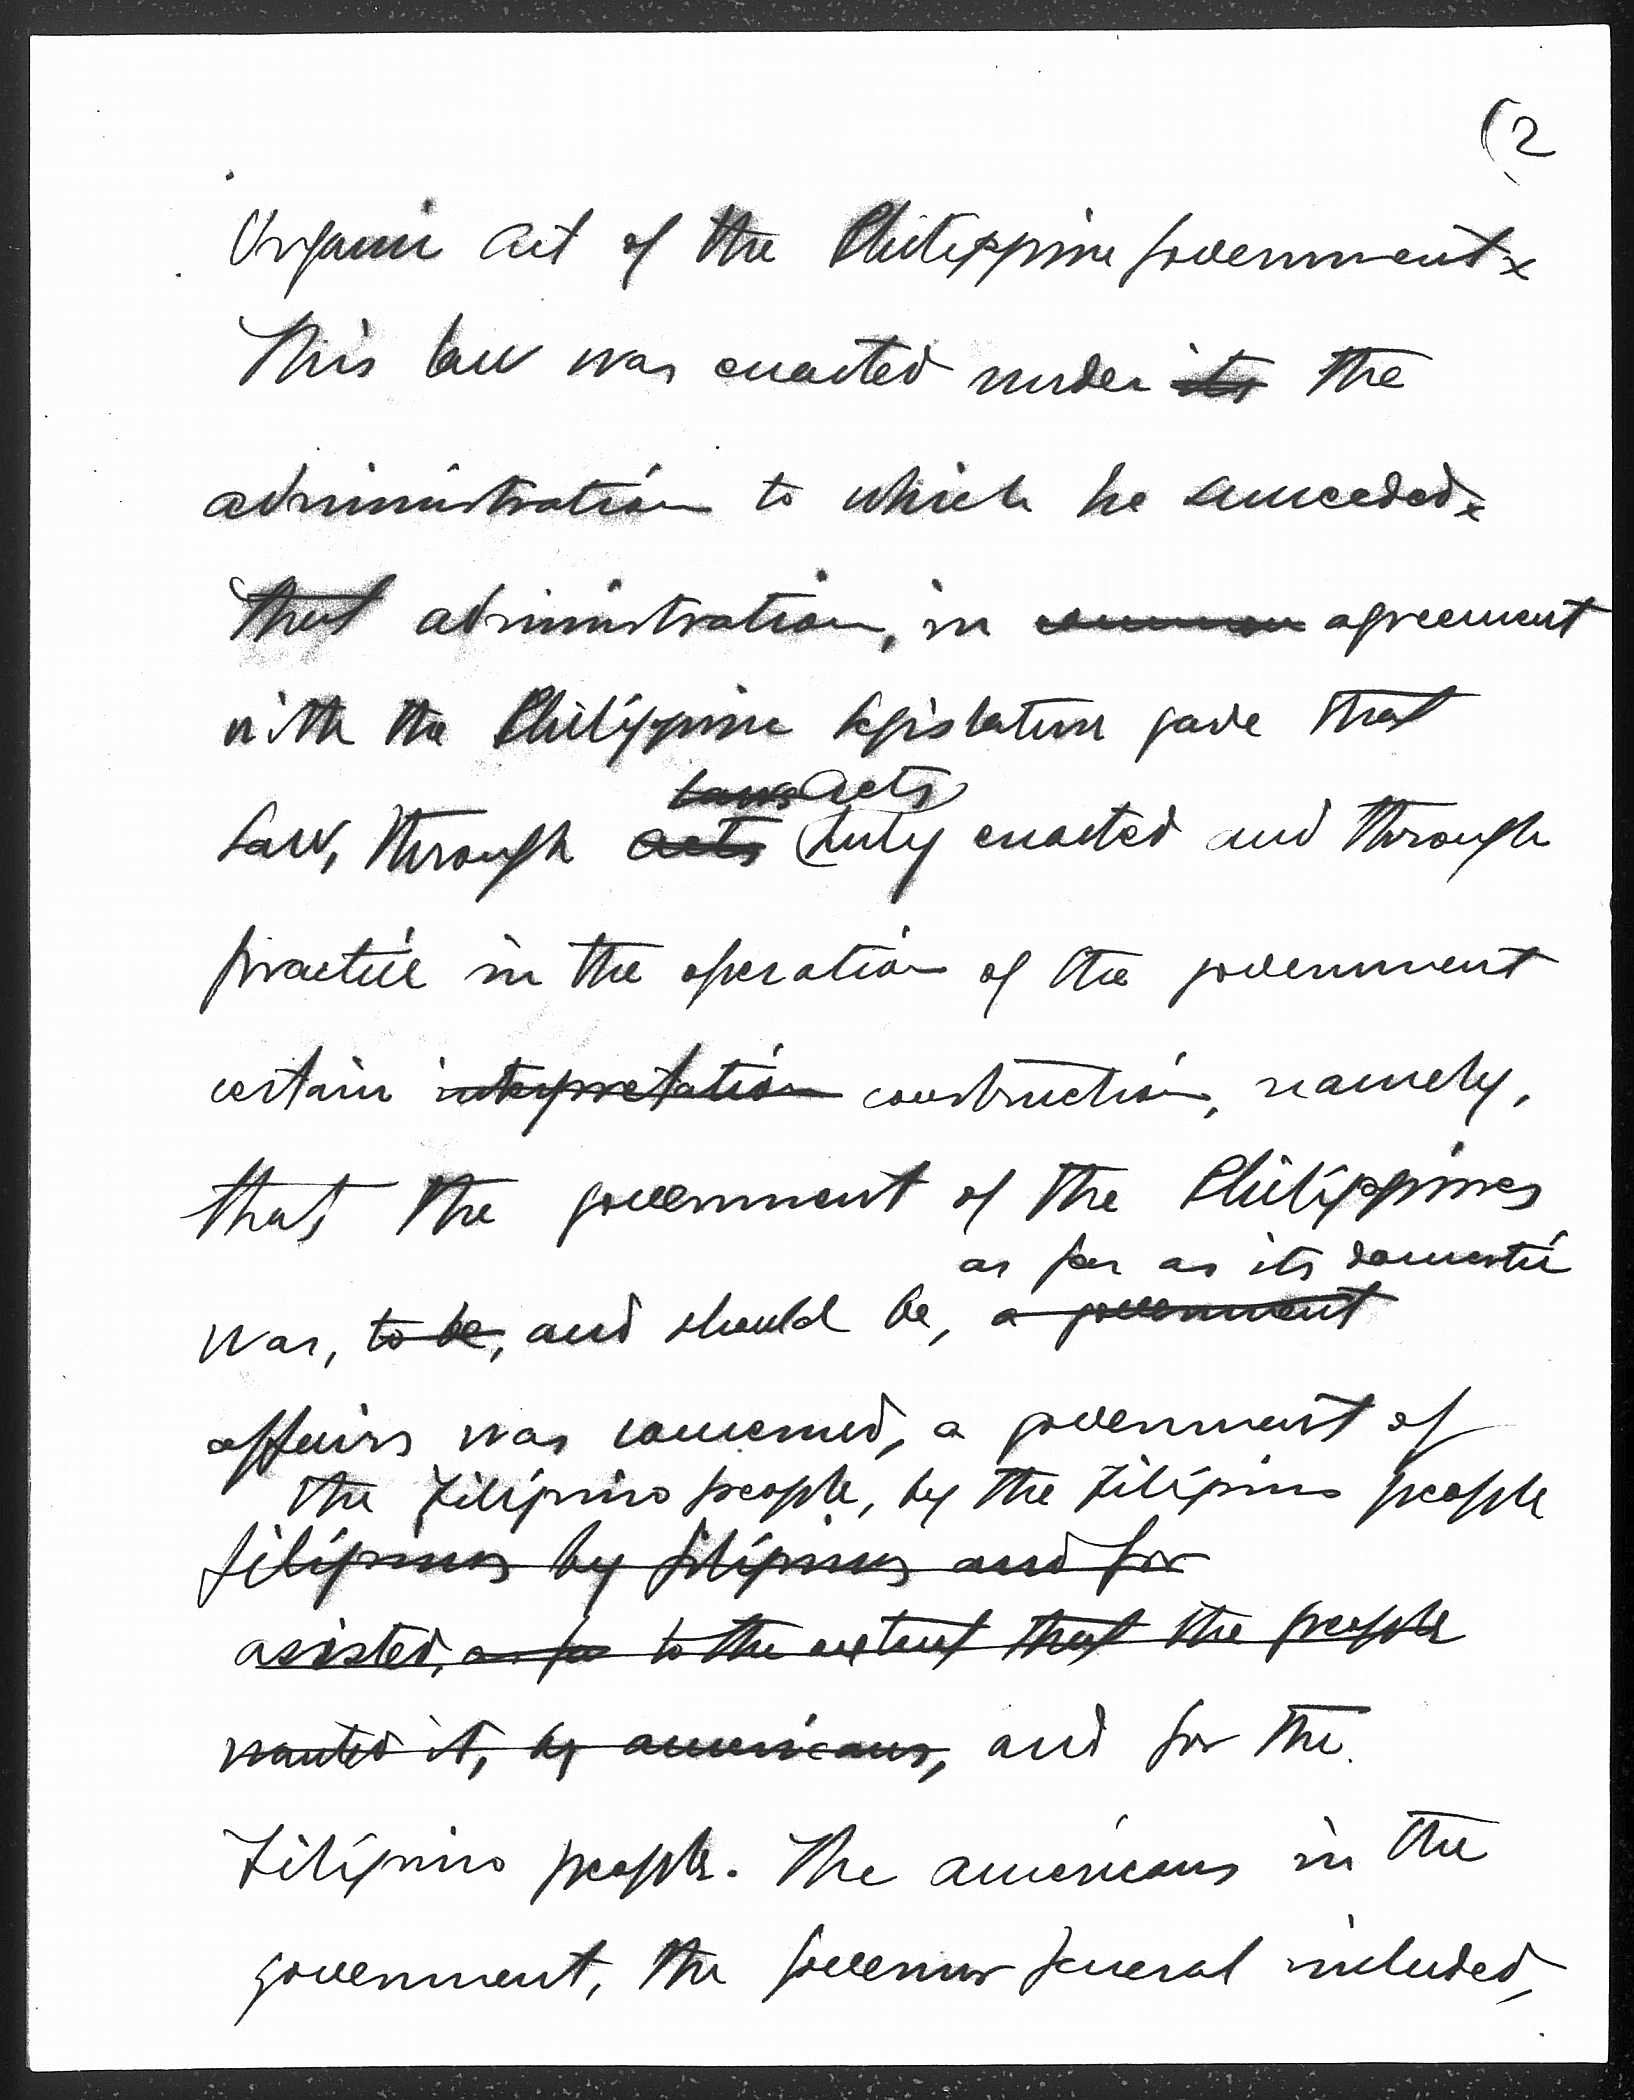 (2
Organic Act of the Philippine Government x
This law was enacted under its the
administration to which he succeeded x
that administration, in common agreement
with the Philippine legislature gave that
laws acts
law, through acts duly enacted and through
practice in the operation of the government
certain interpretation construction, namely,
that the government of the Philippines
as far as its domestic
was, to be, and should be, a government
affairs was concerned, a government of
the Filipino people, by the Filipino people
filipinos by filipinos and for
assisted, as far to the extent that the people
wanted it, by americans, and for the
Filipino people. The americans in the
government, the Governor General included,